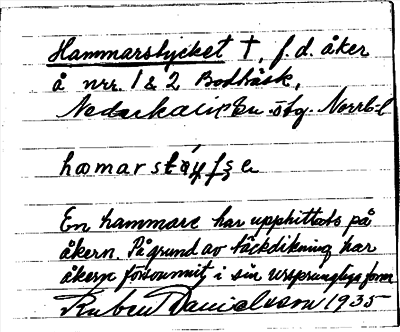 Hammarstycket †, f.d. åker
å nrr. 1 & 2 Bodträsk,
Nederkalix sn. Norrb-l
hamarst
En hammare har upphittats på
åkern. På grund av täckdikning har
åkern försvunnit i sin ursprungliga form
Ruben Danielsson 1935